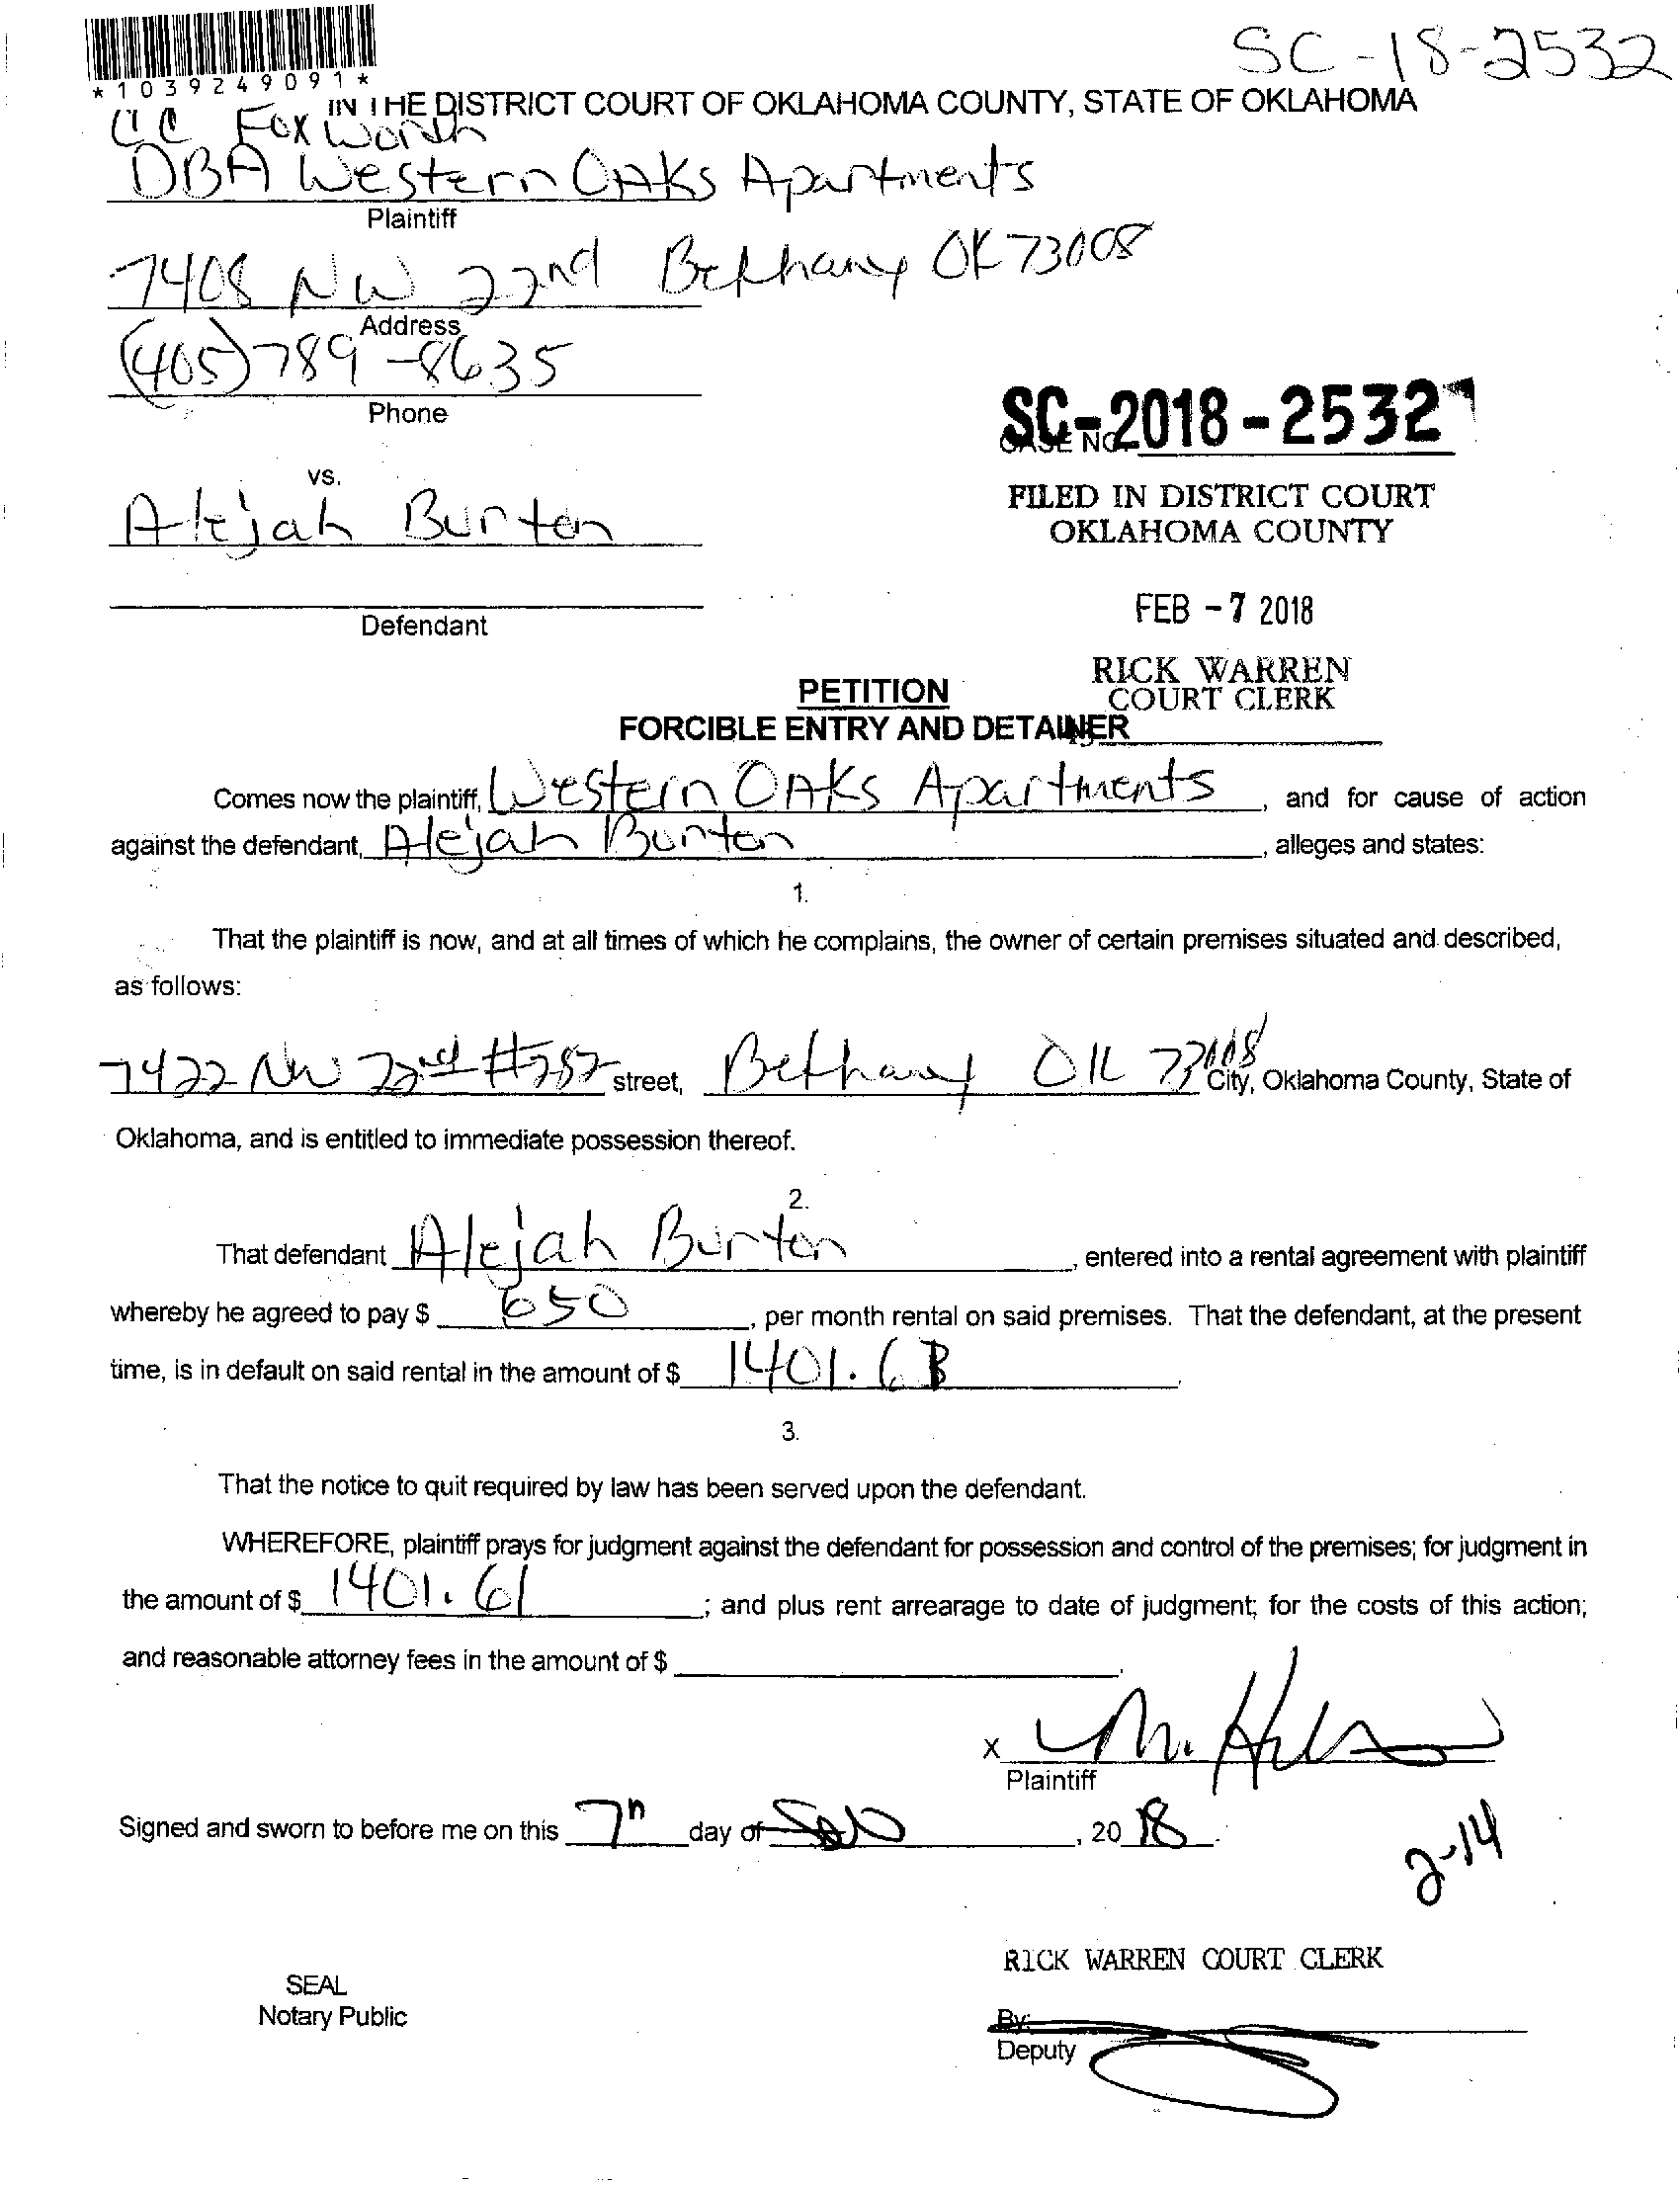 SC-18-2532
*1039249091*
IN THE DISTRICT COURT OF OKLAHOMA COUNTY, STATE OF OKLAHOMA
CC Foxworth
DBA Western OAKs Apartments
Plaintiff
7408 NW 22nd Bethany OK 73008
Address
(405) 789-8635
Phone
SC-2018-2532
CASE NO.
vs.
Alejah Burton
FILED IN DISTRICT COURT
OKLAHOMA COUNTY
FEB -7 2018
Defendant
RICK WARREN
COURT CLERK
PETITION
FORCIBLE ENTRY AND DETAINER
Comes now the plaintiff, Western OAKs Apartments, and for cause of action
against the defendant, Alejah Burton, alleges and states:
1.
That the plaintiff is now, and at all times of which he complains, the owner of certain premises situated and described,
as follows:
7422 NW 22nd #282 street, Bethany OK 73008 City, Oklahoma County, State of
Oklahoma, and is entitled to immediate possession thereof.
2.
That defendant Alejah Burton, entered into a rental agreement with plaintiff
whereby he agreed to pay $ 650, per month rental on said premises. That the defendant, at the present
time, is in default on said rental in the amount of $ 1401.6
3.
That the notice to quit required by law has been served upon the defendant.
WHEREFORE, plaintiff prays for judgment against the defendant for possession and control of the premises; for judgment in
the amount of $ 1401.61; and plus rent arrearage to date of judgment; for the costs of this action;
and reasonable attorney fees in the amount of $
x
Plaintiff
Signed and sworn to before me on this 7th day of , 2018.
2-14
RICK WARREN COURT CLERK
SEAL
Notary Public
By:
Deputy